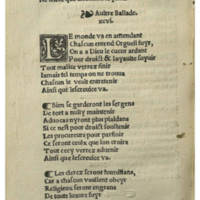 Autre Ballade.
xcvi.
LE monde va en attendant
Chascun entend Orgueil fuyr
On a a Dieu le cueur ardent
Pour droict & loyaulte suyuir
Tout malice verrez finir
Jamais tel temps on ne trouua
Chascun le veult entretenir
Ainsi que lescreuice va.
Bien se garderont les sergens
De tort a nully maintenir
Aduocatz nyront plus plaidans
Si ce nest pour droict soustenir
Les procureurs pour partir
Ce seront ceulx que lon trouua
Tout cecy verrez aduenir
Ainsi que lescreuice va.
Les clercz seront humilians,
Car a chascun vouldront obeyr
Religieux seront engrans
De toute leurs